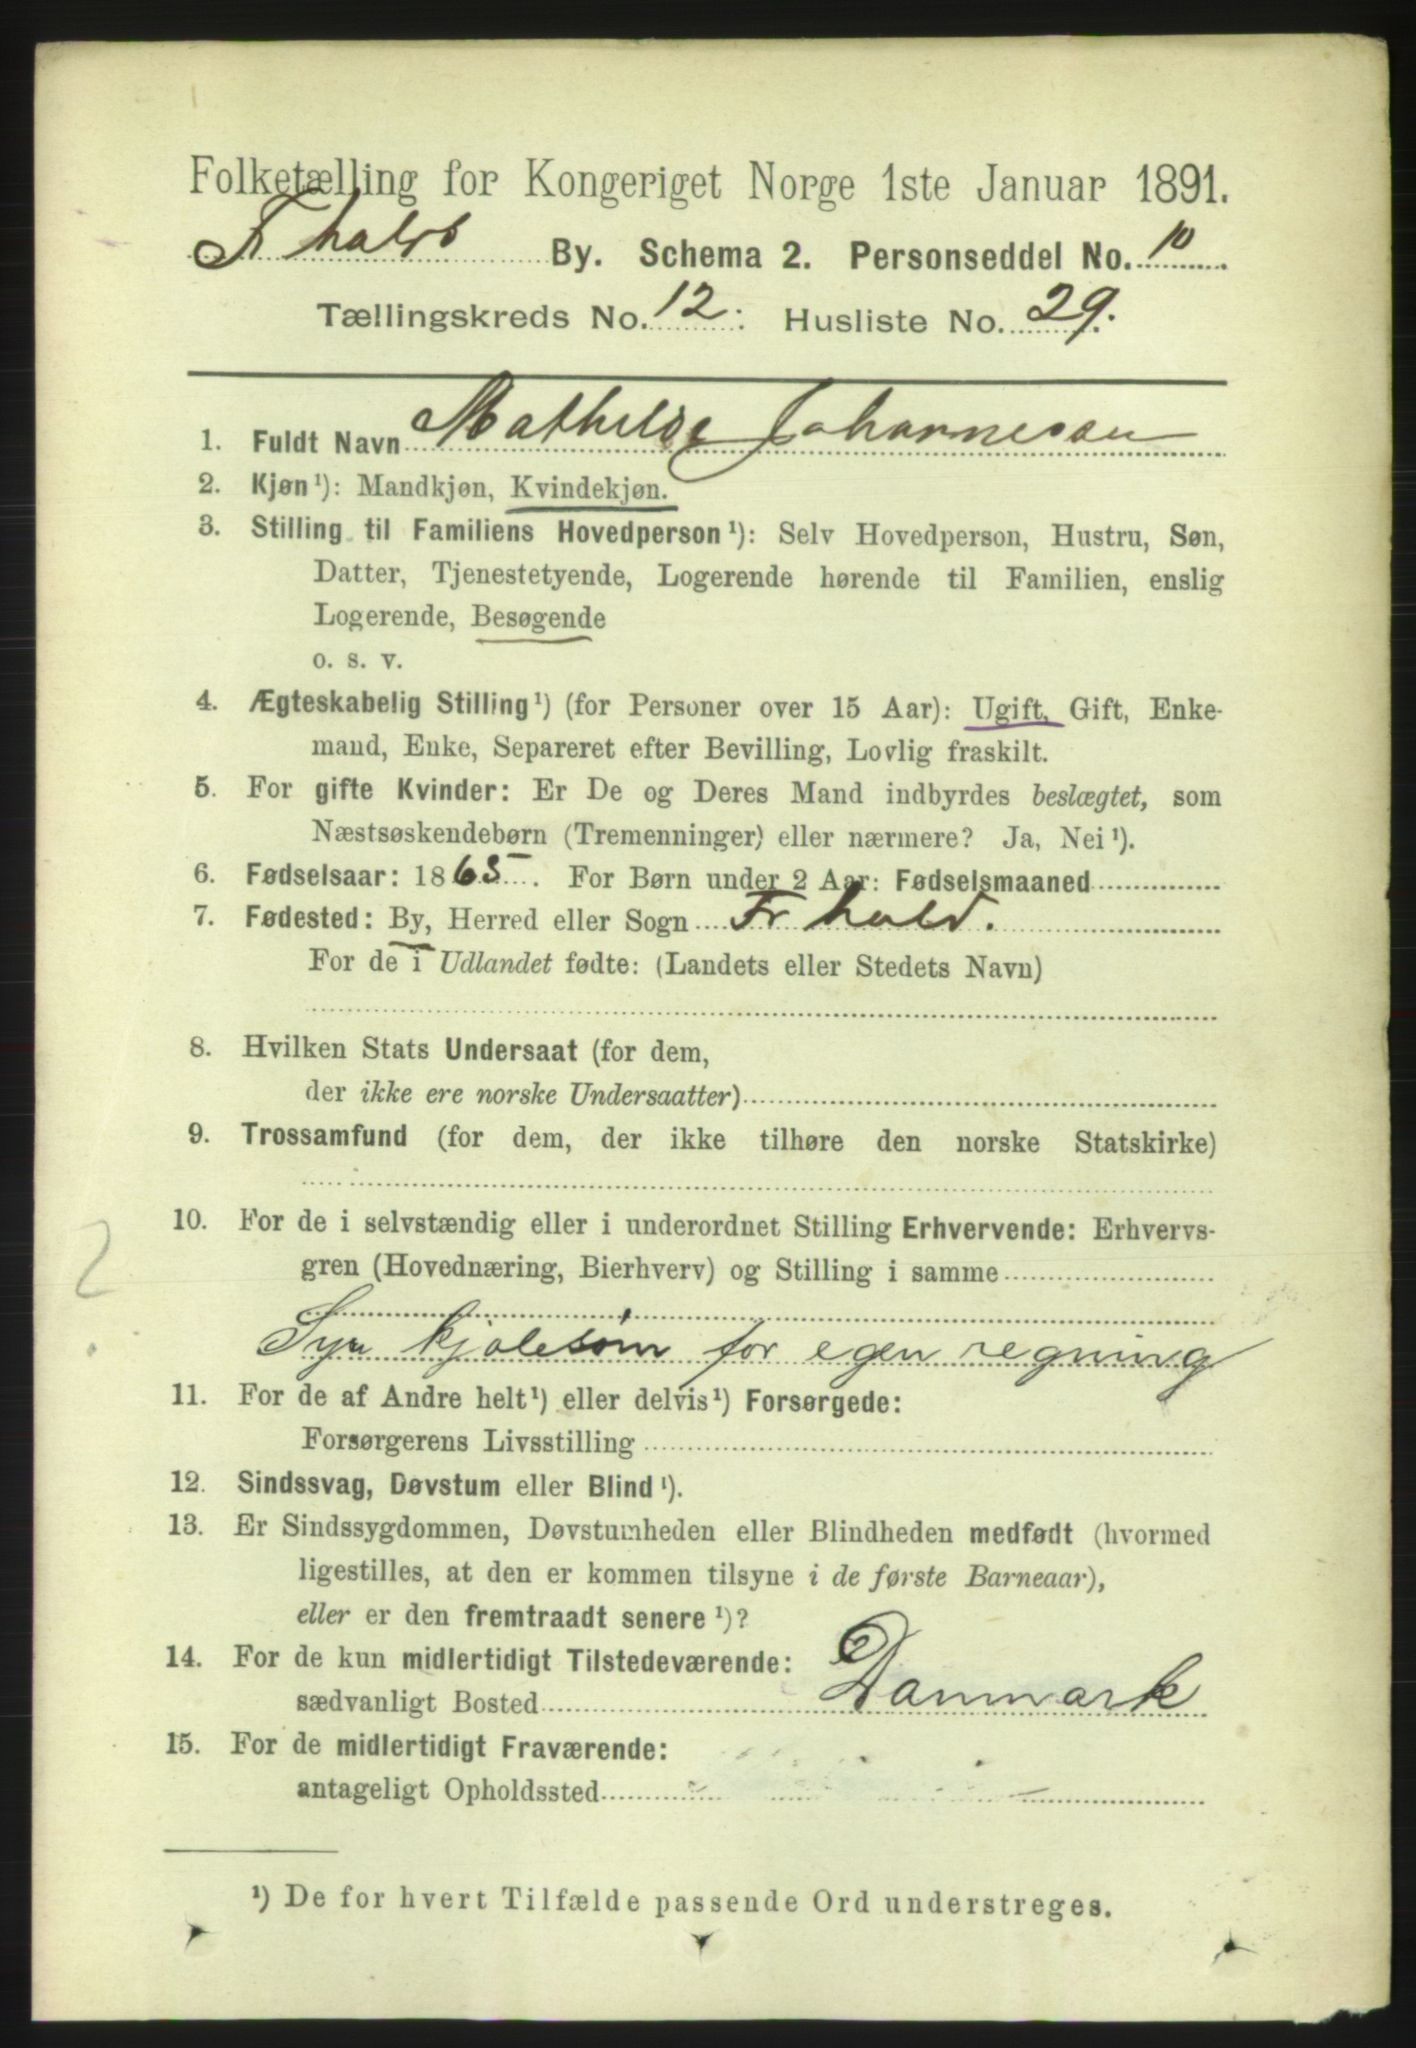 Folketælling for Kongeriget Norge 1ste Januar 1891.
Fr hald By. Schema 2. Personseddel No. 10
Tællingskreds No. 12 : Husliste No. 29.
1. Fuldt Navn Mathilde Johannesen
2. Kjøn¹): Mandkjøn, Kvindekjøn.
3. Stilling til Familiens Hovedperson¹): Selv Hovedperson, Hustru, Søn,
Datter, Tjenestetyende, Logerende hørende til Familien, enslig
Logerende, Besøgende
o. s. v.
4. Ægteskabelig Stilling¹) (for Personer over 15 Aar): Ugift, Gift, Enke-
mand, Enke, Separeret efter Bevilling, Lovlig fraskilt.
5. For gifte Kvinder: Er De og Deres Mand indbyrdes beslægtet, som
Næstsøskendebørn (Tremenninger) eller nærmere? Ja, Nei¹).
6. Fødselsaar: 1865. For Børn under 2 Aar: Fødselsmaaned
7. Fødested: By, Herred eller Sogn Fr hald.
For de i Udlandet fødte: (Landets eller Stedets Navn)
8. Hvilken Stats Undersaat (for dem,
der ikke ere norske Undersaatter)
9. Trossamfund (for dem, der ikke tilhøre den norske Statskirke)
10. For de i selvstændig eller i underordnet Stilling Erhvervende: Erhvervs-
gren (Hovednæring, Bierhverv) og Stilling i samme
2
Syr kjolesøm for egen regning
11. For de af Andre helt¹) eller delvis¹) Forsørgede:
Forsørgerens Livsstilling
12. Sindssvag, Døvstum eller Blind¹).
13. Er Sindssygdommen, Døvstumheden eller Blindheden medfødt (hvormed
ligestilles, at den er kommen tilsyne i de første Barneaar),
eller er den fremtraadt senere¹)?
14. For de kun midlertidigt Tilstedeværende:
sædvanligt Bosted Danmark
15. For de midlertidigt Fraværende:
antageligt Opholdssted
¹) De for hvert Tilfælde passende Ord understreges.